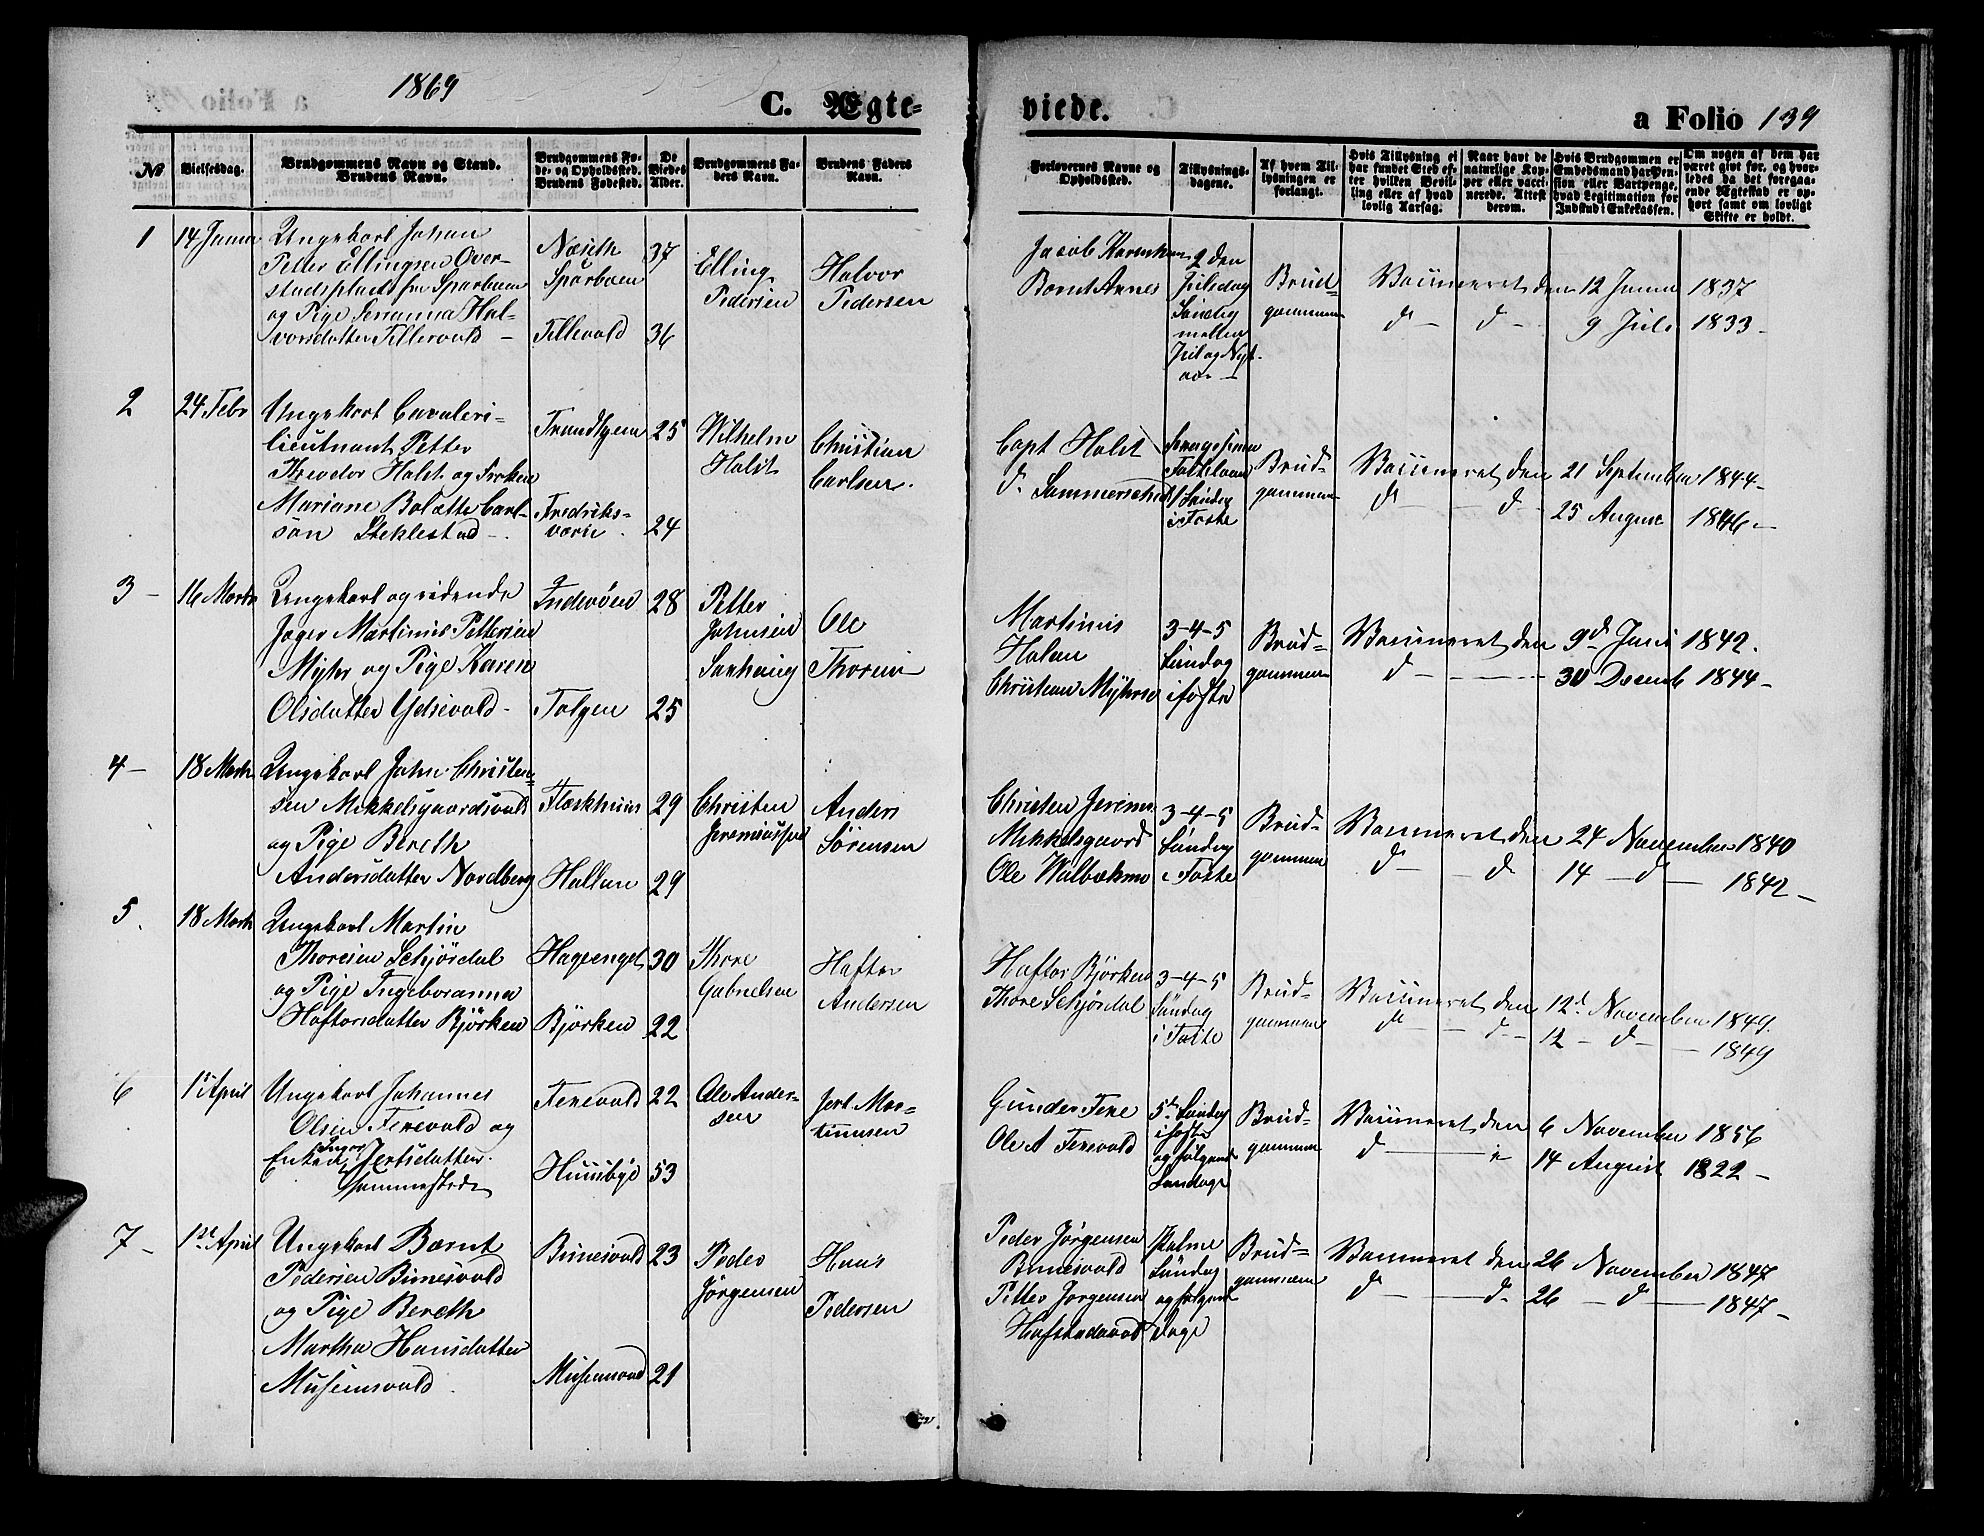 1869
C. Ægte-
viede.
a Folio 139
No
Vielsesdag.
Brudgommens Navn og Stand.
Brudens Navn.
Brudgommens Fø-
de- og Opholdssted.
Brudens Fødested.
De
Viedes
Alder.
Brudgommens Fa-
ders Navn.
Brudens Faders
Navn.
Forlovernes Navne og
Opholdssted.
Tillysnings-
dagene.
Af hvem Til-
lysningen er
forlangt.
Hvis Tillysning ei
har fundet Sted ef-
ter hvilken Bevil-
ling eller af hvad
lovlig Aarsag.
Naar havt de
naturlige Kop-
per eller vacci-
nerede. Attest
derom.
Hvis Brudgommen er
Embedsmand har Pen-
sion eller Vartpenge,
hvad Legitimation for
Indskud i Enkekassen.
Om nogen af dem har
været givt før, og hvor-
ledes da det foregaa-
ende Ægteskab er op-
hørt samt om lovligt
Skifte er holdt.
1
14 Januar
Ungekarl Johan
Petter Ellingsen Over-
stadsplads fra Sparboen
og Pige Serianna Hal-
vorsdatter Tillervald -
Næseth
Sparboen
Tillevald
37
36
Elling
Pedersen
Halvor
Pedersen
Bernt Aunes
2 den
Juledag
Søndag
mellem
Jul og Nyt-
aar -
Brud-
gommen
Vaccineret den 12 Januar 1837
d - d - 9 Juli 1833 -
2
24 Febr
Ungekarl Cavaleri-
lieutnant Petter
Theodor Holst og Frøken
Mariane Bolette Carl-
sen Steklestad -
Trondhjem
Fredriks-
værn.
25
24
Wilhelm
Holst
Christian
Carlsen.
Capt Holst
d. Sommerschield
Fastelavn
1 Søndag
i Faste
Brud-
gommen
Vaccineret den 21 September 1844 -
d - - d - 25 August 1846 -
3 -
16 Marts
Ungekarl og ridende
Jæger Martinus Pettersen
Myhr og Pige Karen
Olsdatter Ydsevald -
Inderøen
Tolgen
28
25
Petter
Johnsen
Saxhaug
Ole
Thorsen
Martinus
Halan
Christian Myhr
3-4-5
Søndag
i faste
Brud-
gommen
Vaccineret den 9d Juni 1842.
d - - - 30 Decemb 1844 -
4 -
18 Marts
Ungekarl John Christen-
sen Mikkelsgaardsvald
og Pige Bereth
Andersdatter Nordberg
Flækhuus
Hallan
29
29
Christen
Jeremiassen
Anders
Sørensen
Christen Jerem.
Mikkelsgaard
Ole Walbækmo
3-4-5
Søndag
i Faste
Brud-
gommen
Vaccineret den 24 November 1840
d - d 14 - d - 1842 -
5.
18 Marts
Ungekarl Martin
Thoresen Schjørdal
og Pige Ingeboranna
Haftorsdatter Bjørken
Hageenget
Bjørken
30
22
Thore
Gabrielsen
Haftor
Andersen
Haftor Bjørken
Thore Schjørdal
3-4-5
Søndag
i Faste
Brud-
gommen
Vaccineret den 12d November 1849.
d - - d - 12 - d - - 1849
6
1st April
Ungekarl Johannes
Olsen Ferevald og
Enken Inger Jertsdatter
Femevald
Huusbye
22
53
Ole Ander-
sen
Jert Mor-
tinusen
Gunder Fere
Ole A Ferevald
5te Søndag
i faste
og følgende
Søndage
Brud-
gommen
Vaccineret den 6 November 1856
d - - 14 August 1822 -
7 -
1st April
Ungekarl Bærnt
Pedersen Binesvald
og Pige Bereth
Martha Hansdatter
Musemsvald.
Binesvald
Musemsvald
23
21
Peder
Jørgensen
Hans
Pedersen
Peder Jørgensen
Binesvald
Petter Jørgensen
Palme
Søndag
og følgende
dage
Brud-
gommen
Vaccineret den 26 November 1847
d - - d. 26 - d - 1847 -